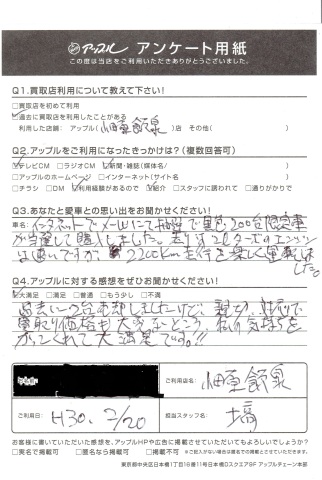 アップル アンケート用紙
この度は当店をご利用いただきありがとうございました。
Q1.買取店利用について教えて下さい!
□買取店を初めて利用
☑過去に買取店を利用したことがある
利用した店舗: アップル( )店 その他( )
Q2.アップルをご利用になったきっかけは?(複数回答可)
☑テレビCM □ラジオCM ☑新聞・雑誌(媒体名/ )
□アップルのホームページ □インターネット(サイト名 )
□チラシ □DM ☑利用経験があるので ☑紹介 □スタッフに誘われて □通りがかりで
Q3.あなたと愛車との思い出をお聞かせください!
車名: インターネットでメールにて 200台限定車
が当選して購入しました。 2Lターボのエンジン
は速いですが、2200km走行を楽しく運転しま
した。
Q4.アップルに対する感想をぜひお聞かせください!
☑大満足 □満足 □普通 □もう少し □不満
過去に2台売却しましたけど、親切、
買取り価格も大変なところ、私の気持ちを
がってくれて大満足です。!!
ご利用店名:
ご利用日: H30. 2/20
担当スタッフ名:
お客様に書いていただいた感想を、アップルHPや広告に掲載させていただいてもよろしいでしょうか?
□実名で掲載可 □匿名なら掲載可 □掲載不可 ※ご記入がない場合は匿名での掲載とさせていただきます。
東京都中央区日本橋1丁目16番11号日本橋Dスクエア9F アップルチェーン本部